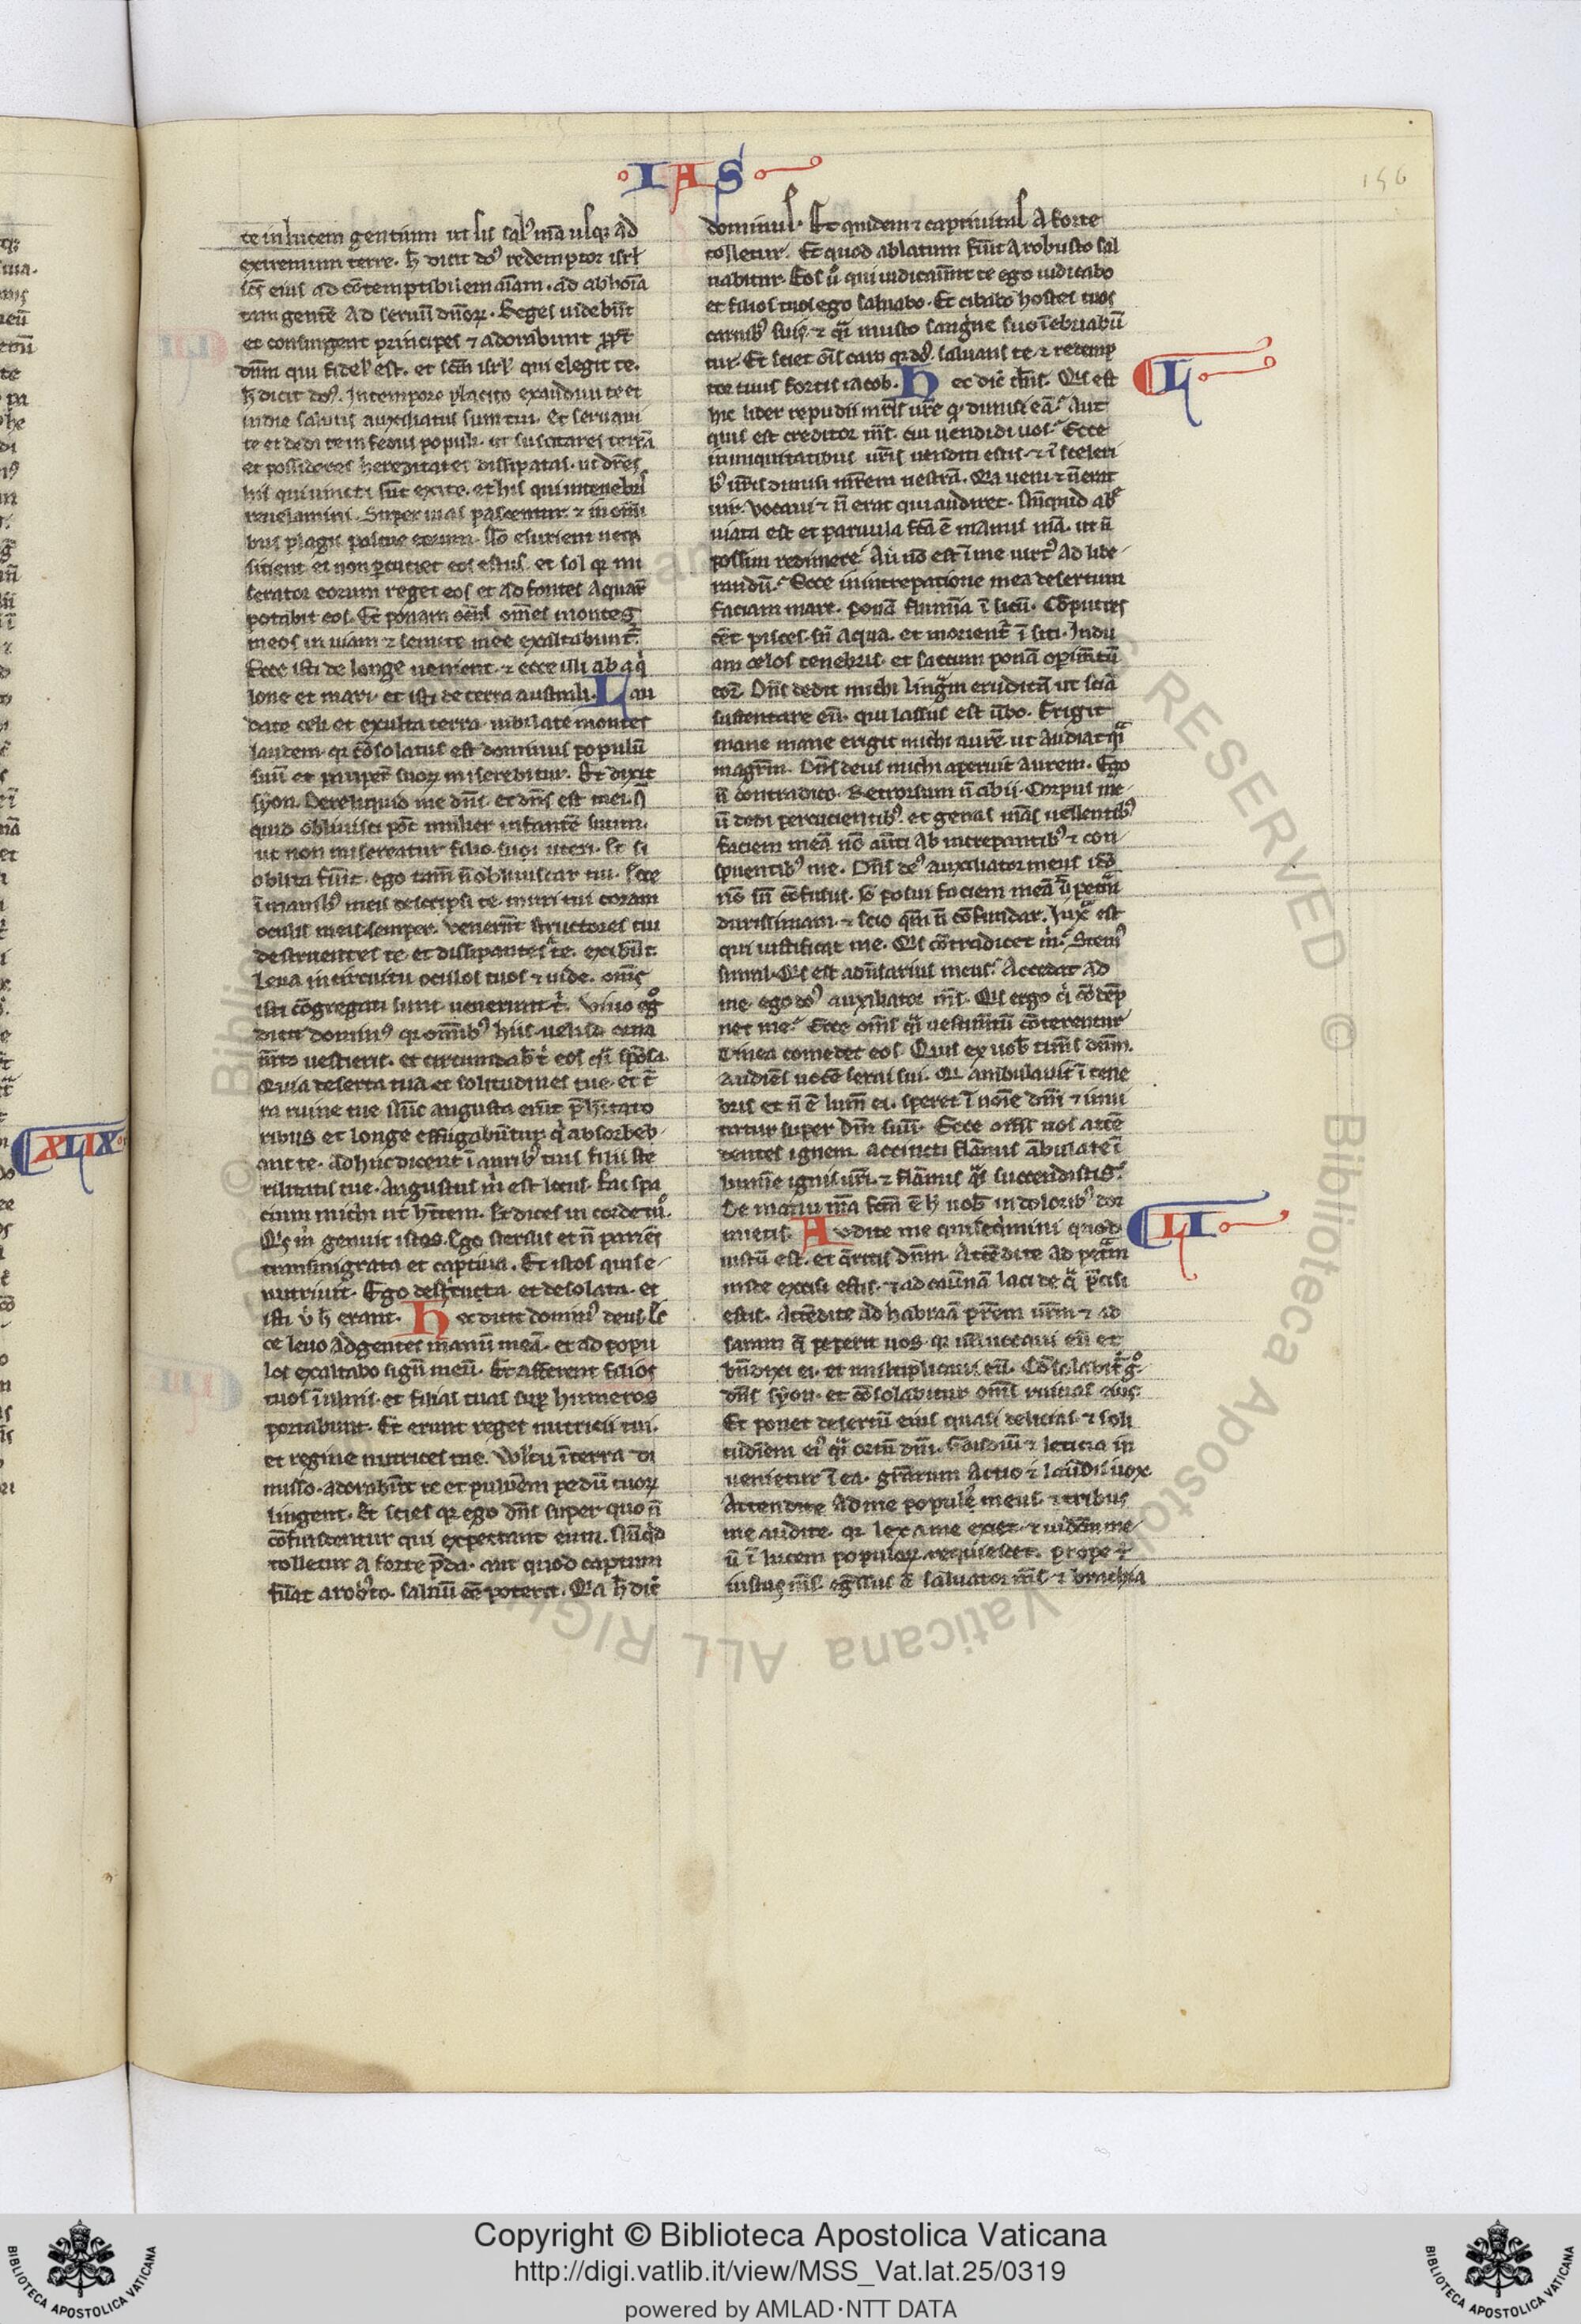 IAS
156
te in lucem gentium ut sis sal⁹ mā usq; ad
extremum terre. h̄ dicit dn̄s redemptor isrl
sc̄s eius ad cōtemptibilem aīam. ad abhoīa
tam gentē ad seruū dn̄oꝝ. Reges uidebūt
et consurgent principes ⁊ adorabunt ꝓpt̄
dn̄m qui fidel' est. et sc̄m isrl' qui elegit te.
h̄ dicit dn̄s. In tempore placito exaudiui te et
in die salutis auxiliatus sum tui. Et seruaui
te et dedi te in fedus populi. ut suscitares terrā
et possideres hereditates dissipatas. ut dic̄es
his qui uincti sūt exite. et his qui in tenebris
reuelamini. Super uias pascentur ⁊ in om̄i
bus plagis pascue eorum. Nō esurient neq;
sitient et non ꝑcutiet eos estus. et sol qr mi
serator eorum reget eos et ad fontes aquaꝝ
potabit eos. Et ponam om̄es montes
meos in uiam ⁊ semite mee exaltabunt̄.
Ecce isti de longe uenient. ⁊ ecce illi ab aq̇
lone et mari. et isti de terra australi. Lau
date celi et exulta terra. iubilate montes
laudem. qr cōsolatus est dominus populū
suū et pauper̄ suoꝝ miserebitur. Et dixit
syon. Dereliquid me dn̄s. et dn̄s est mei. N̄
quid obliuisci pōt mulier infantē suum.
ut non misereatur filio sui uteri. Et si
oblita fūit. ego tam̄ n̄ obliuiscar tui. Ecce
ī manib⁹ meis descripsi te. muri tui coram
oculis meis semper. Venerūt structores tui
destruentes te et dissipantes te. exibūt.
Leua in circuitu oculos tuos ⁊ uide. om̄s
isti cōgregati sunt uenerunt t'. Viuo ego
dicit domin⁹ qr om̄ib⁹ hiis uelud orna
m̄to uestieris. et circumdab t' eos q̄i spōsa.
Quia deserta tua et solitudines tue. et t̄
ra ruine tue. Nūc angusta erūt p̄ hītato
ribus et longe effugabūtur q̇ absorbeb
ant te. Adhuc dicent ī aurib⁹ tuis filii ste
rilitatis tue. Angustus m̄ est locus. Fac spa
cium michi ut h̄item. Et dices in corde tuo.
Qis m̄ genuit istos. Ego sterilis et n̄ pariēs
transmigrata et captiua. Et istos quis e
nutriuit. Ego destructa et desolata. et
isti u' h̄ erant. Hec dicit domin⁹ deus. Ec
ce leuo ad gentes manū meā. et ad popu
los exaltabo signū meū. Et afferent filios
tuos ī ulnis. et filias tuas suꝑ humeros
portabunt. Et erunt reges nutricii tui.
et regine nutrices tue. Vultu ī terra di
misso. adorabūt te et puluerem pedū tuoꝝ
lingent. Et scies qr ego dn̄s super quo n̄
cōfundentur qui expectant eum. Nūq̇d
tolletur a forte p̄da. aut quod captum
fūat a rob'to. saluū ēē poterit. Qa h̄ dic̄
dominus. Et quidem ⁊ captiuitas a forte
tolletur. Et quod ablatum fūit a robusto sal
uabitur. Eos ů qui iudicauer̄t te ego iudicabo
et filios tuos ego saluabo. Et cibabo hostes tuos
carnib⁹ suis. ⁊ q̄i musto sang̓ne suo īebriabū
tur. Et sciet om̄is caro qr dn̄s. saluans te ⁊ redemp
tor tuus fortis iacob. Hec dic̄ dn̄s. Qis est
L
hic liber repudii mr̄is ur̄e q̇ dimisi eā. Aut
quis est creditor m̄s. cui uendidi uos. Ecce
in iniquitatibus ur̄is uenditi estis. ⁊ ī sceleri
b⁹ ur̄is dimisi mr̄em uestrā. Qa ueni ⁊ n̄ erat
uir. Vocaui ⁊ n̄ erat qui audiret. Nūquid abb̄
uiata est et paruula fc̄a ē manus mā. ut n̄
possim redimere. Aut nō est ī me uirt⁹ ad libe
randū. Ecce in increpatione mea desertum
faciam mare. ponā flumīa ī siccū. Cōputres
cēt pisces sn̄ aqua. et morient̄ ī siti. Indu
am celos tenebris. et saccum ponā operim̄tū
eoꝝ. Dn̄s dedit michi linguam eruditā ut sciā
sustentare eū. qui lassus est ūbo. Erigit
mane mane erigit michi aurē. ut audiat q̄i
magr̄m. Dn̄s deus michi aperuit aurem. Ego
n̄ contradico. Retrorsum n̄ abii. Corpus me
ū dedi percucientib⁹. et genas meas uellentib⁹
faciem meā nō auerti ab increpantib⁹ ⁊ con
spuentib⁹ me. Dn̄s de⁹ auxiliator meus ideo
nō sū cōfusus. Iō posui faciem meā ut petrā
durissimam. ⁊ scio qm̄ n̄ cōfundar. Iuxᵃ est
qui iustificat me. Qis cōtradicet m̄. Stem⁹
simul. Qis est adūsarius meus. Accedat ad
me. ego dn̄s auxiliator m̄s. Qis ergo q̇ cōdēp
net me. Ecce om̄s q̄i uestim̄tū cōterentur
Tinea comedet eos. Quis ex uob̄ timēs dn̄m.
audiēs uocē serui sui. Qi ambulauit ī tene
bris et n̄ ē lum̄ ei. speret ī noīe dn̄i ⁊ inni
tatur super dm̄ suū. Ecce om̄s uos accē
dentes ignem. accincti flāmis ābulate ī
lumīe ignis ur̄i. ⁊ flāmis q̄s succendistis.
De manu mēa fc̄m ē h̄ uob̄. in dolorib⁹ dor
mietis. Audite me qui seq̇mini quod
LI
iustū est. et q̄ritis dn̄m. Attēdite ad petrā
unde excisi estis. ⁊ ad cauernā laci de q̄ p̄cisi
estis. Attēdite ad habraā pr̄em ur̄m ⁊ ad
saram q̄ peperit uos. qr unū uocaui eū et
bn̄dixi ei. et multiplicaui eū. Cōsolabit̄ g°
dn̄s syon. et cōsolabitur om̄s ruinas eius.
Et ponet desertū eius quasi delicias. ⁊ soli
tudinem ei⁹ q̄i ortū dn̄i. Gaudiū ⁊ leticia in
uenietur ī ea. gr̄arum actio ⁊ laudis uox.
Attendite ad me popule meus ⁊ tribus
me audite. qr lex a me exiet. ⁊ iudiciū me
ū ī lucem populoꝝ requiescet. prope ē
iustus m̄s. egressus ē saluator m̄s. ⁊ brachia
XLIX
Copyright © Biblioteca Apostolica Vaticana
http://digi.vatlib.it/view/MSS_Vat.lat.25/0319
powered by AMLAD·NTT DATA
BIBLIOTECA APOSTOLICA VATICANA
BIBLIOTECA APOSTOLICA VATICANA
© Biblioteca Apostolica Vaticana ALL RIGHTS RESERVED